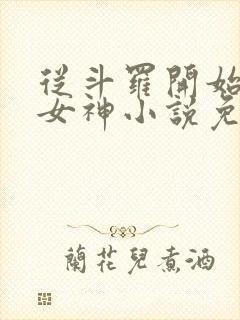 從斗羅開始
女神小說免
蘭花兒煮酒